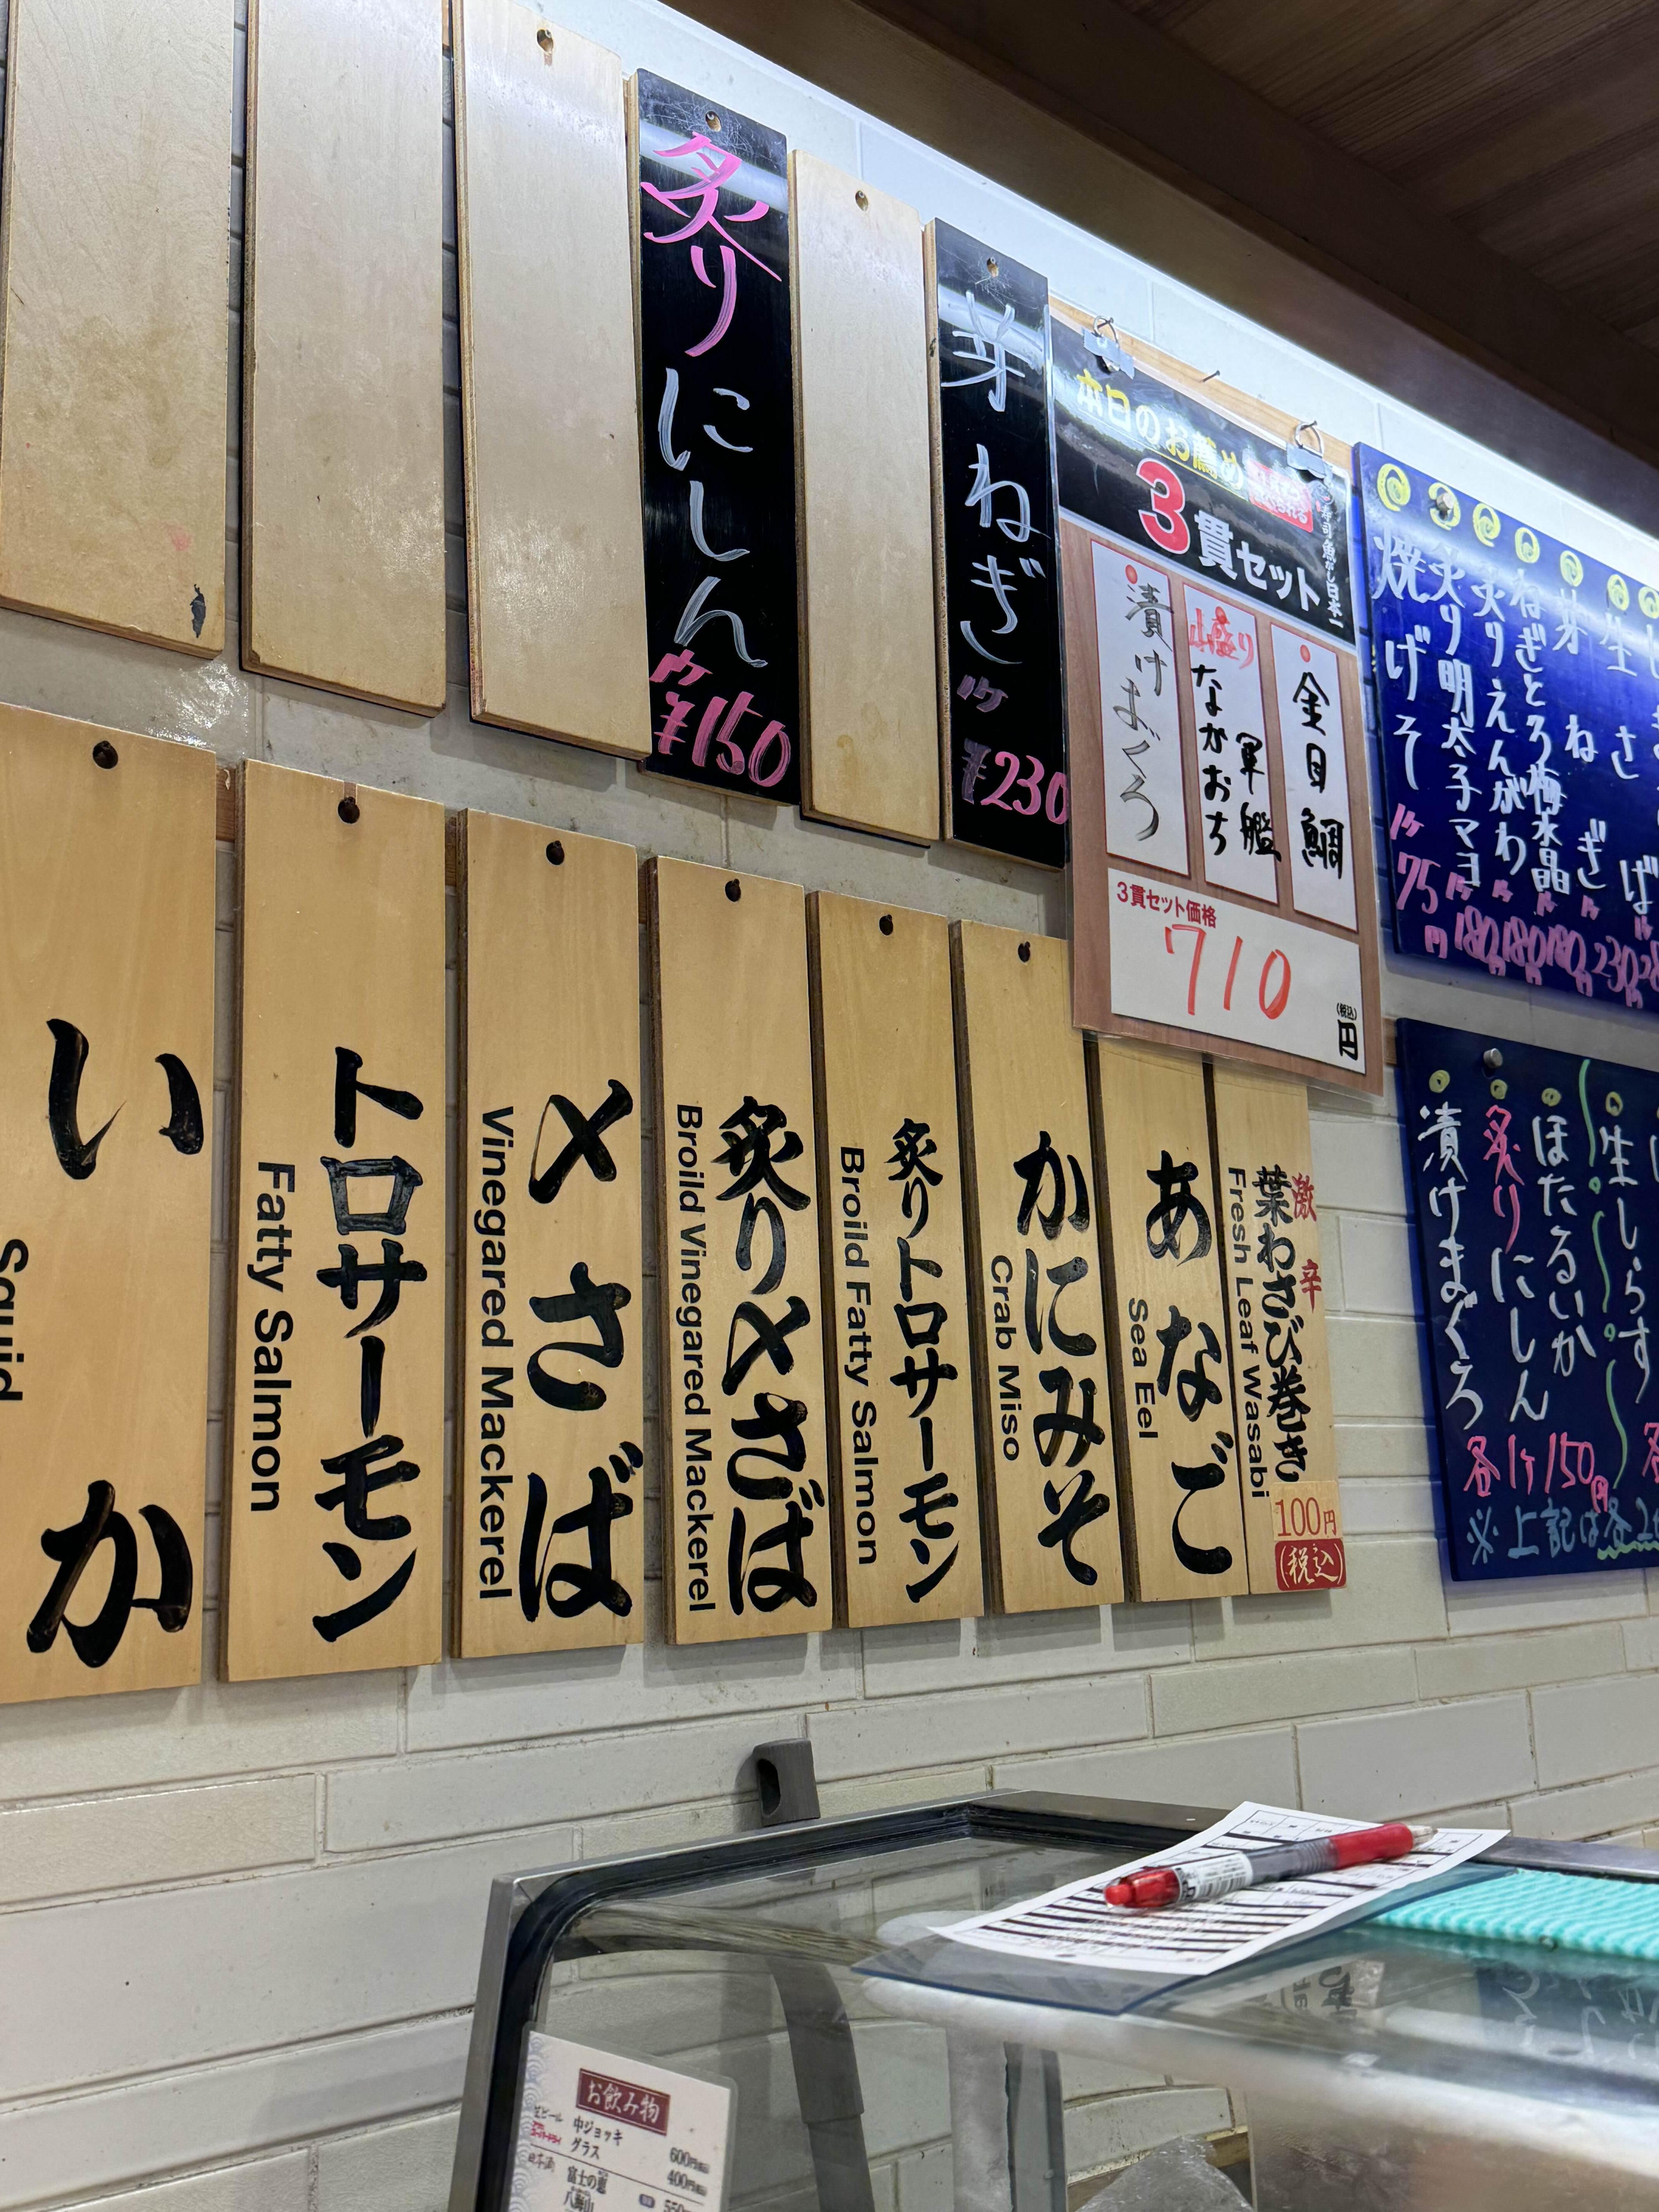 炙りにしん
1ケ
¥150
芽ねぎ
1ケ
¥230
本日のお薦め
3貫セット
寿司 魚がし日本一
漬けまぐろ
山盛り
なかおち
軍艦
金目鯛
3貫セット価格
710
(税込)
円
焼げそ 1ケ 75円
炙り明太子マヨ 1ケ 180円
炙りえんがわ 1ケ 180円
ねぎとろ梅水晶 1ケ 180円
芽ねぎ 1ケ 230円
生さば
漬けまぐろ
炙りにしん
ほたるいか
各1ケ150円
生しらす
※上記は各
いか
Squid
トロサーモン
Fatty Salmon
〆さば
Vinegared Mackerel
炙り〆さば
Broild Vinegared Mackerel
炙りトロサーモン
Broild Fatty Salmon
かにみそ
Crab Miso
あなご
Sea Eel
激辛
葉わさび巻き
Fresh Leaf Wasabi
100円
(税込)
お飲み物
生ビール
中ジョッキ 600円
グラス 400円
日本酒
富士の恵
八海山
550